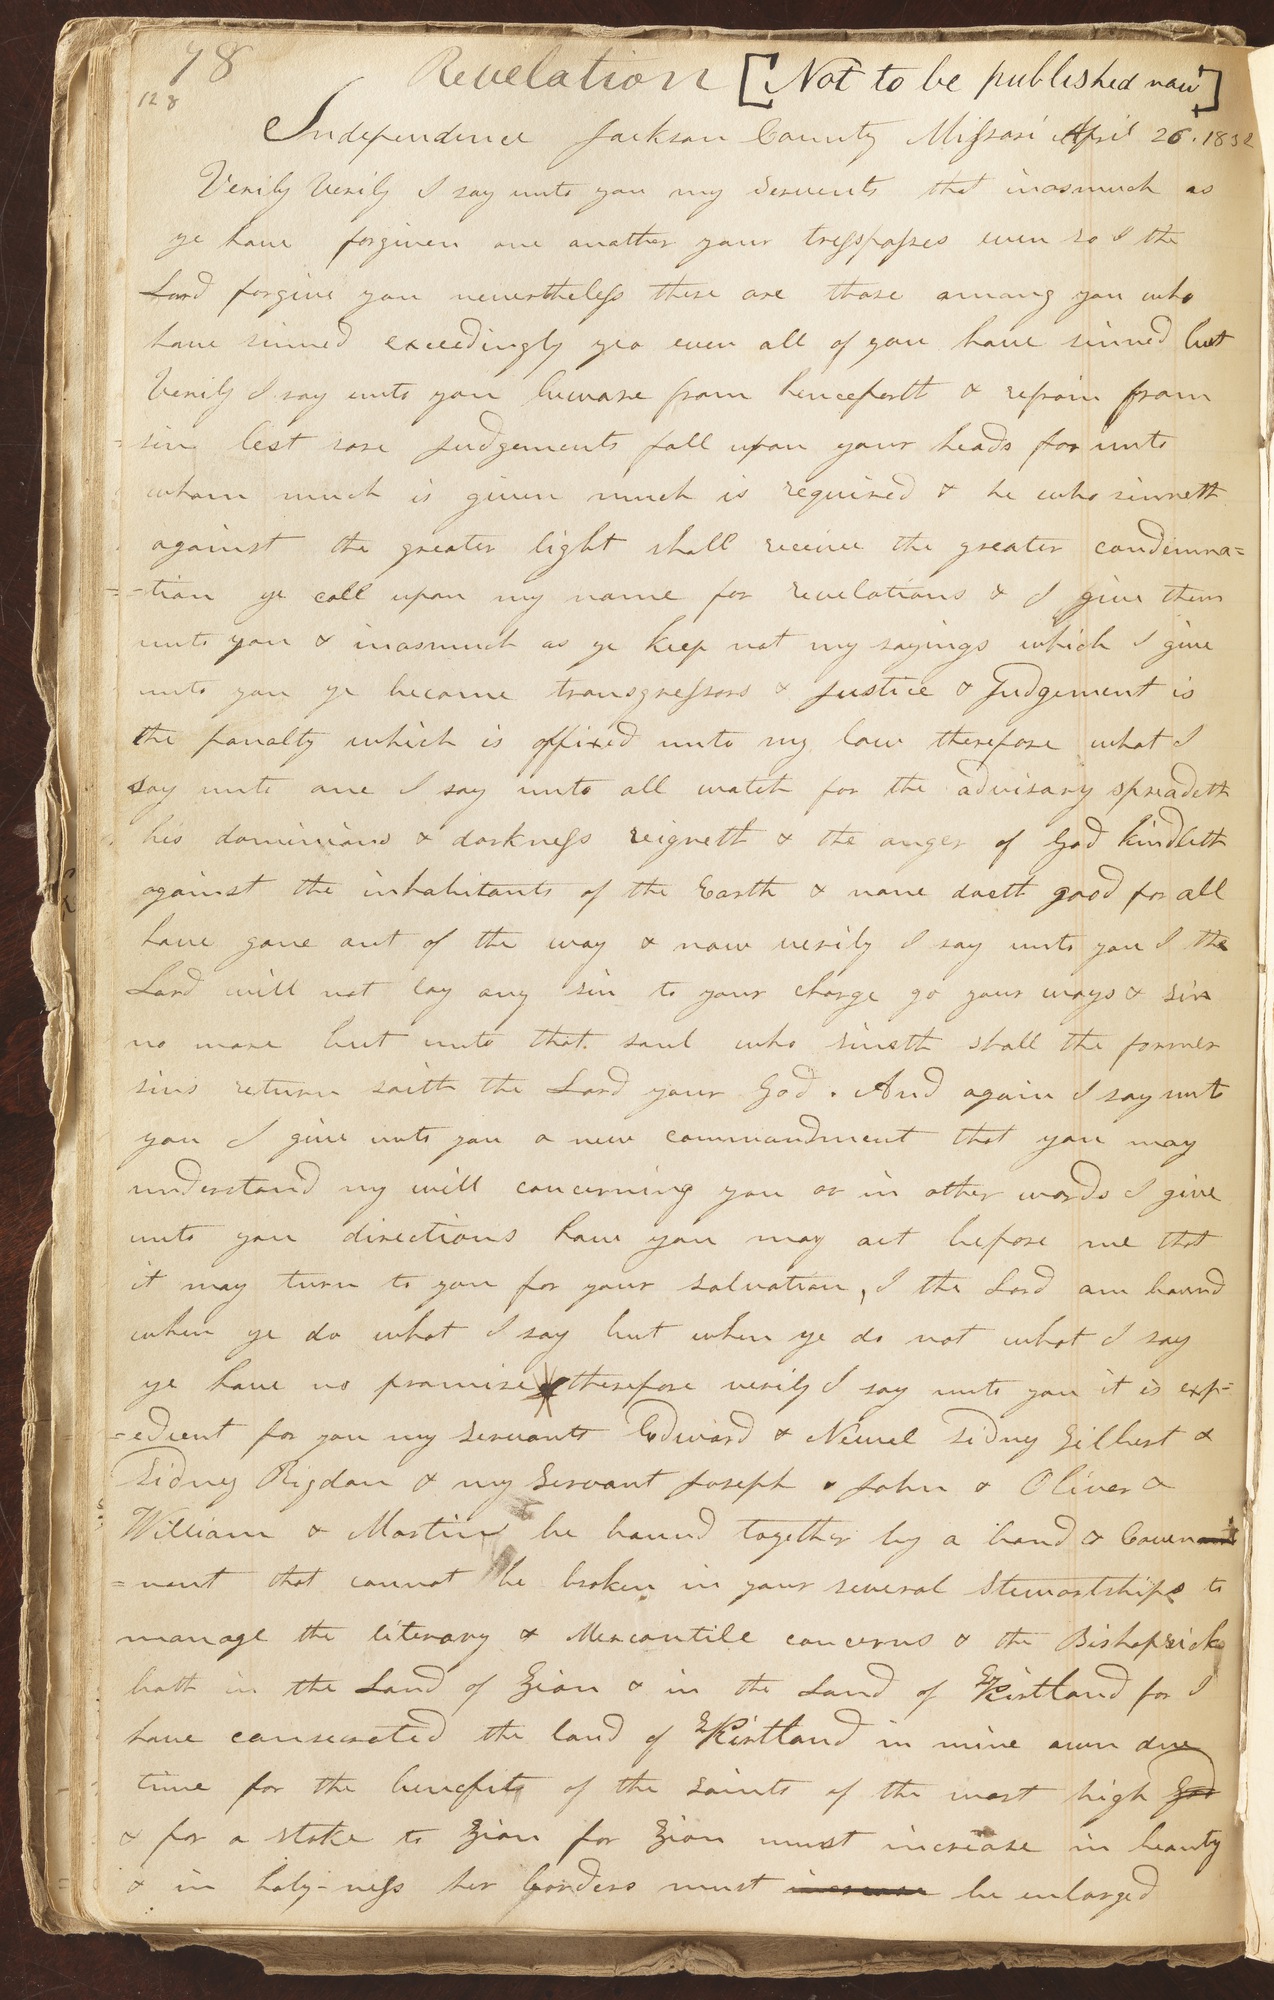 78
128
Revelation [Not to be published now]
Independence Jackson County Missori April 26. 1832
Verily Verily I say unto you my Servents that inasmuch as
ye have forgiven one another your tresspasses even so I the
Lord forgive you nevertheless there are those among you who
have sinned exceedingly yea even all of you have sinned but
Verily I say unto you beware from henceforth & refrain from
sin lest sore Judgements fall upon your heads for unto
whom much is given much is required & he who sinneth
against the greater light shall receive the greater condemna=
=tion ye call upon my name for revelations & I give them
unto you & inasmuch as ye keep not my sayings which I give
unto you ye become transgressors & Justice & Judgement is
the panalty which is affixed unto my law therefore what I
say unto one I say unto all watch for the advisary spreadeth
his dominions & darkness reigneth & the anger of God kindleth
against the inhabitants of the Earth & none doeth good for all
have gone out of the way & now verily I say unto you I the
Lord will not lay any sin to your charge go your ways & sin
no more but unto that soul who sineth shall the former
sins return saith the Lord your God. And again I say unto
you I give unto you a new commandment that you may
understand my will concerning you or in other words I give
unto you directions how you may act before me that
it may turn to you for your salvation, I the Lord am bound
when ye do what I say but when ye do not what I say
ye have no promise therefore verily I say unto you it is exp=
=edient for you my servants Edward & Newel Sidney Gilbert &
Sidney Rigdon & my Servant Joseph & John & Oliver &
William & Martin be bound together by a bond & Covenant
=nant that cannot be broken in your several Stewartships to
manage the literary & Mercantile concerns & the Bishopricks
both in the Land of Zion & in the Land of Kirtland for I
have consecrated the land of Kirtland in mine own due
time for the benefits of the saints of the most high God
& for a stake to Zion for Zion must increase in beauty
& in holy-ness her borders must increase be enlarged